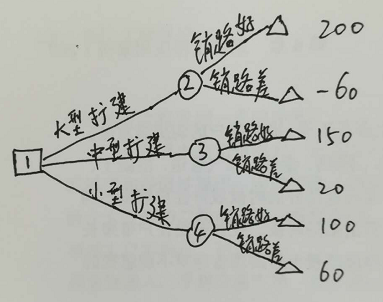 销路好 200
大型扩建 2 销路差 -60
销路好 150
1 中型扩建 3 销路差 20
小型扩建 销路好 100
4 销路差 60